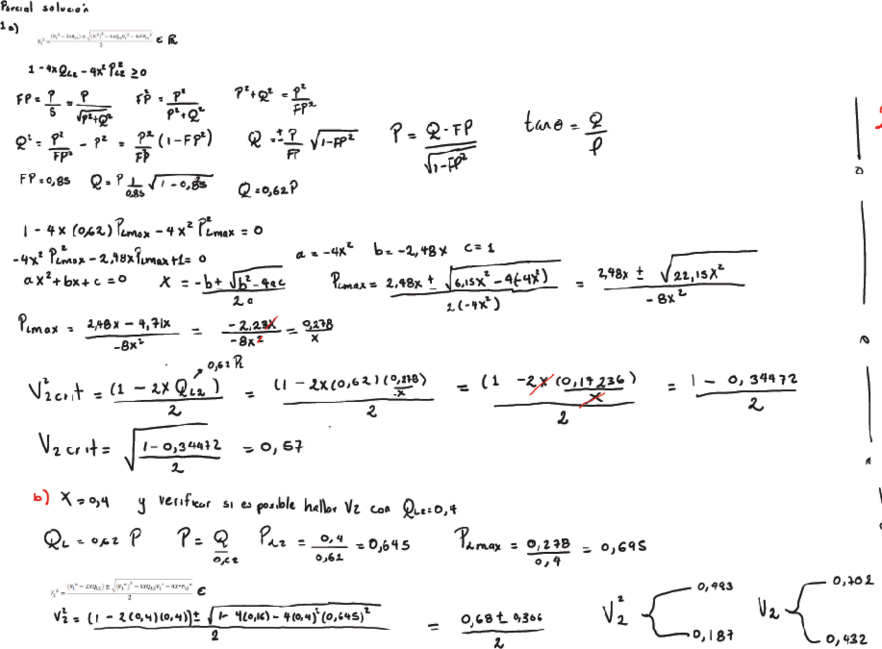 Parcial solución
1a)
V₂² = ((V₁² - 2xQ_L2) ± √((V₁²)² - 4xQ_L2V₁² - 4x²P_L2²))/2 ∈ ℝ
1 - 4xQ_L2 - 4x²P²_L2 ≥ 0
FP = P/S = P/√(P²+Q²)   FP² = P²/(P²+Q²)   P²+Q² = P²/FP²
Q² = P²/FP² - P² = P²/FP² (1-FP²)   Q = ± P/FP √(1-FP²)   P = Q·FP/√(1-FP²)   tanθ = Q/P
FP=0,85   Q = P 1/0,85 √(1-0,85²)   Q=0,62P
1 - 4x(0,62)P_Lmax - 4x²P²_Lmax = 0
-4x²P²_Lmax - 2,48xP_Lmax + 1 = 0   a = -4x²   b = -2,48x   c = 1
ax²+bx+c=0   x = (-b ± √(b²-4ac))/2a   P_Lmax = (2,48x ± √(6,15x² - 4(-4x²)))/2(-4x²) = (2,48x ± √(22,15x²))/-8x²
P_Lmax = (2,48x - 4,71x)/-8x² = -2,23x/-8x² = 0,278/x
0,62 P_L
V²₂crit = (1 - 2xQ_L2)/2 = (1 - 2x(0,62)(0,278/x))/2 = (1 - 2x(0,17236)/x)/2 = (1 - 0,34472)/2
V₂crit = √((1-0,34472)/2) = 0,57
b) x=0,4 y verificar si es posible hallar V2 con Q_L2=0,4
Q_L = 0,62 P   P = Q/0,62   P_L2 = 0,4/0,62 = 0,645   P_Lmax = 0,278/0,4 = 0,695
V₂² = ((V₁² - 2xQ_L2) ± √((V₁²)² - 4xQ_L2V₁² - 4x²P_L2²))/2 ∈
V₂² = ((1 - 2(0,4)(0,4)) ± √(1 - 4(0,16) - 4(0,4)²(0,645)²))/2 = (0,68 ± 0,306)/2   V₂² { 0,493   V₂ { 0,702
0,187   0,432